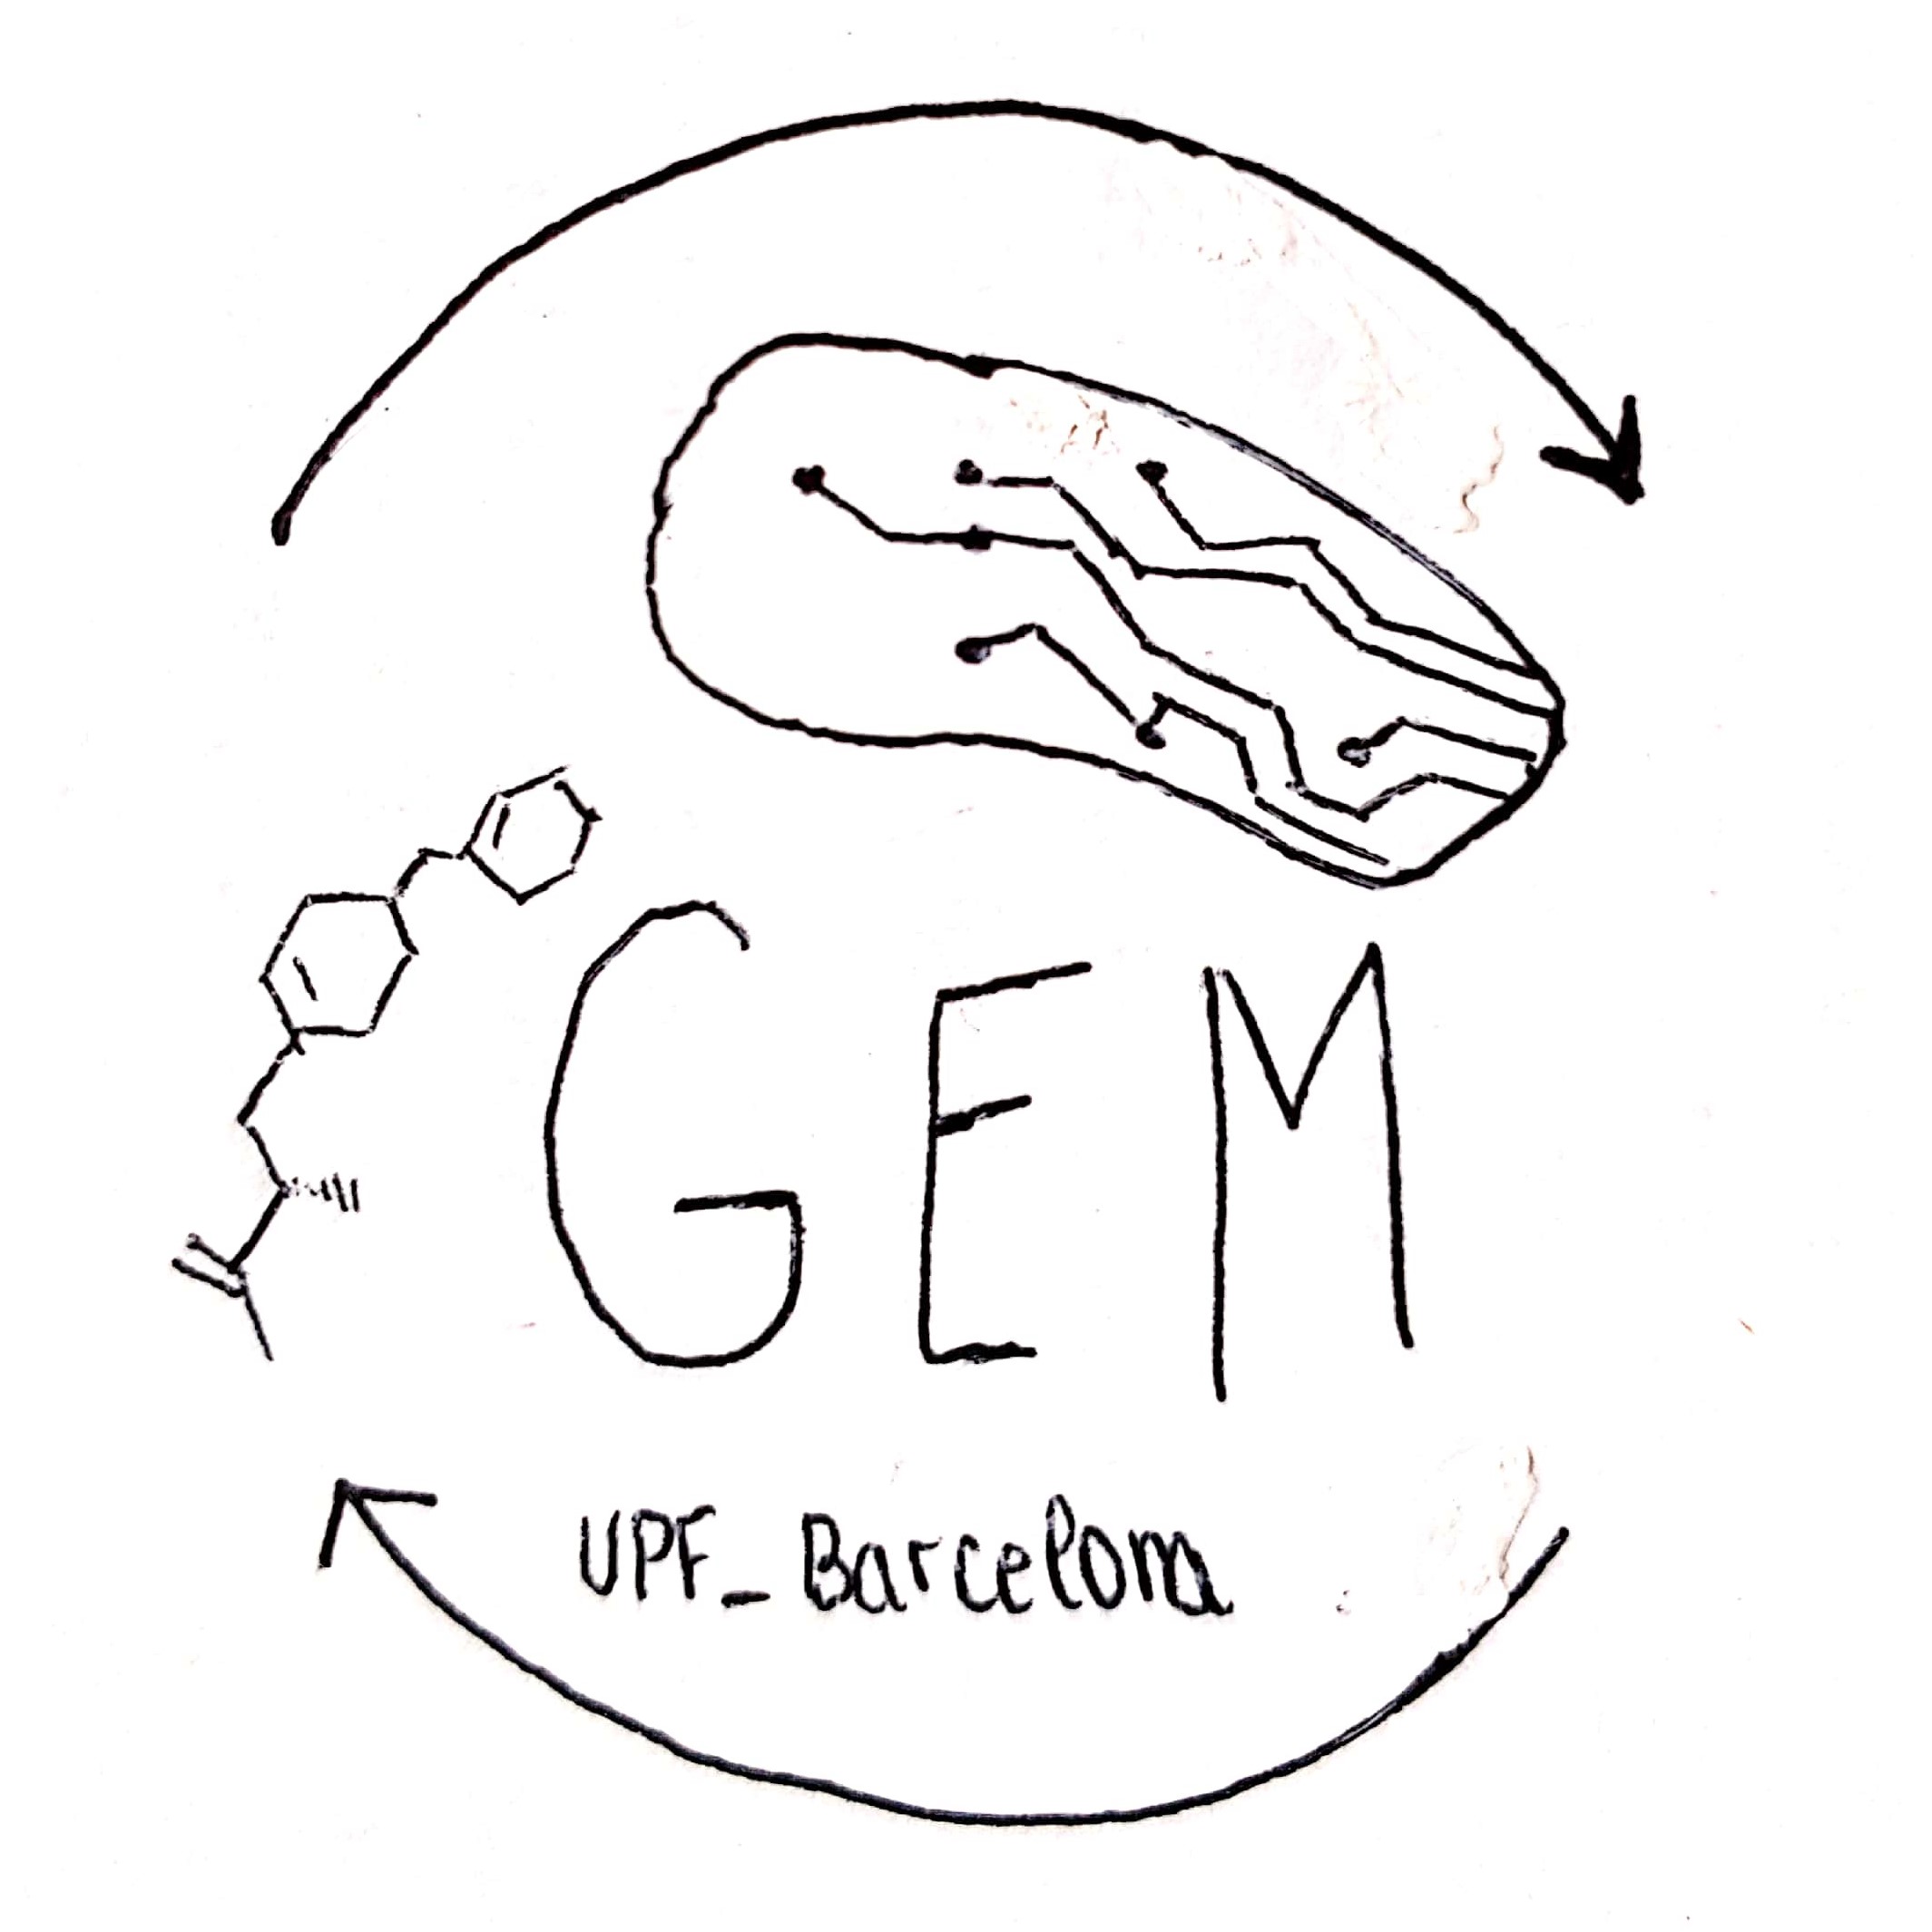 GEM
UPF_Barcelona